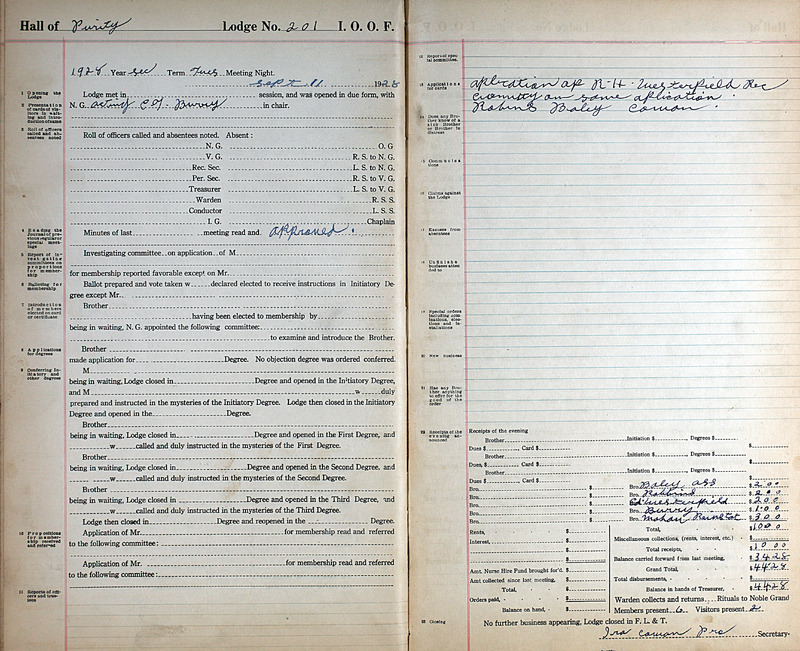 Hall of Purity Lodge No. 201 I. O. O. F.
1928 Year Sec Term Tues Meeting Night.
Sept 11 1928
1 Opening the Lodge
Lodge met in session, and was opened in due form, with
2 Presentation of cards of visitors in waiting and introduction of same
N. G. acting C. J. Burry in chair.
3 Roll of officers called and absentees noted
Roll of officers called and absentees noted. Absent:
N. G. O. G
V. G. R. S. to N. G.
Rec. Sec. L. S. to N. G.
Per. Sec. R. S. to V. G.
Treasurer L. S. to V. G.
Warden R. S. S.
Conductor L. S. S.
I. G. Chaplain
4 Reading the Journal of previous regular or special meetings
Minutes of last meeting read and. approved.
5 Report of investigating committees on propositions for membership
Investigating committee on application of M
for membership reported favorable except on Mr.
6 Balloting for membership
Ballot prepared and vote taken w declared elected to receive instructions in Initiatory De-
gree except Mr.
7 Introduction of members elected on card or certificate
Brother
having been elected to membership by
being in waiting, N. G. appointed the following committee:
to examine and introduce the Brother.
8 Applications for degrees
Brother
made application for Degree. No objection degree was ordered conferred.
9 Conferring Initiatory and other degrees
M
being in waiting, Lodge closed in Degree and opened in the Initiatory Degree,
and M w duly
prepared and instructed in the mysteries of the Initiatory Degree. Lodge then closed in the Initiatory
Degree and opened in the Degree.
Brother
being in waiting, Lodge closed in Degree and opened in the First Degree, and
w called and duly instructed in the mysteries of the First Degree.
Brother
being in waiting, Lodge closed in Degree and opened in the Second Degree, and
w called and duly instructed in the mysteries of the Second Degree.
Brother
being in waiting, Lodge closed in Degree and opened in the Third Degree, and
w called and duly instructed in the mysteries of the Third Degree.
Lodge then closed in Degree and reopened in the Degree.
10 Propositions for membership received and referred
Application of Mr. for membership read and referred
to the following committee:
Application of Mr. for membership read and referred
to the following committee:
11 Reports of officers and trustees
12 Report of special committees.
13 Applications for cards
aplication of R-H- Westerfield Rec
comity on same aplication
Robins Baley Cowan.
14 Does any Brother know of a sick Brother or Brother in distress
15 Communications
16 Claims against the Lodge
17 Excuses from absentees
18 Unfinished business attended to
19 Special orders including nominations, elections and installations
20 New business
21 Has any Brother anything to offer for the good of the order
22 Receipts of the evening announced
Receipts of the evening
Brother Initiation $ Degrees $
Dues $ Card $ $
Brother Initiation $ Degrees $
Dues, $ Card $ $
Brother Initiation $ Degrees $
Dues $ Card $ $
Bro. $ Bro. Baley ass $ 2 00
Bro. $ Bro. $ 2 00
Bro. $ Ed Westerfield $ 2 00
Bro. $ Bro. Burry $ 1 00
Bro. $ Bro. $ 3 00
Total, $ 10 00
Rents, $
Miscellaneous collections, (rents, interest, etc.) $
Interest, $
Total receipts, $ 10 00
Balance carried forward from last meeting, $ 34 28
Amt. Nurse Hire Fund brought for'd. $
Grand Total, $ 44 28
Amt collected since last meeting, $
Total disbursements, $
Total, $
Balance in hands of Treasurer, $ 44 28
Orders paid, $
Warden collects and returns Rituals to Noble Grand
Balance on hand, $
Members present 6 Visitors present 2
23 Closing
No further business appearing, Lodge closed in F. L. & T.
Ira Cowan Pro Secretary.